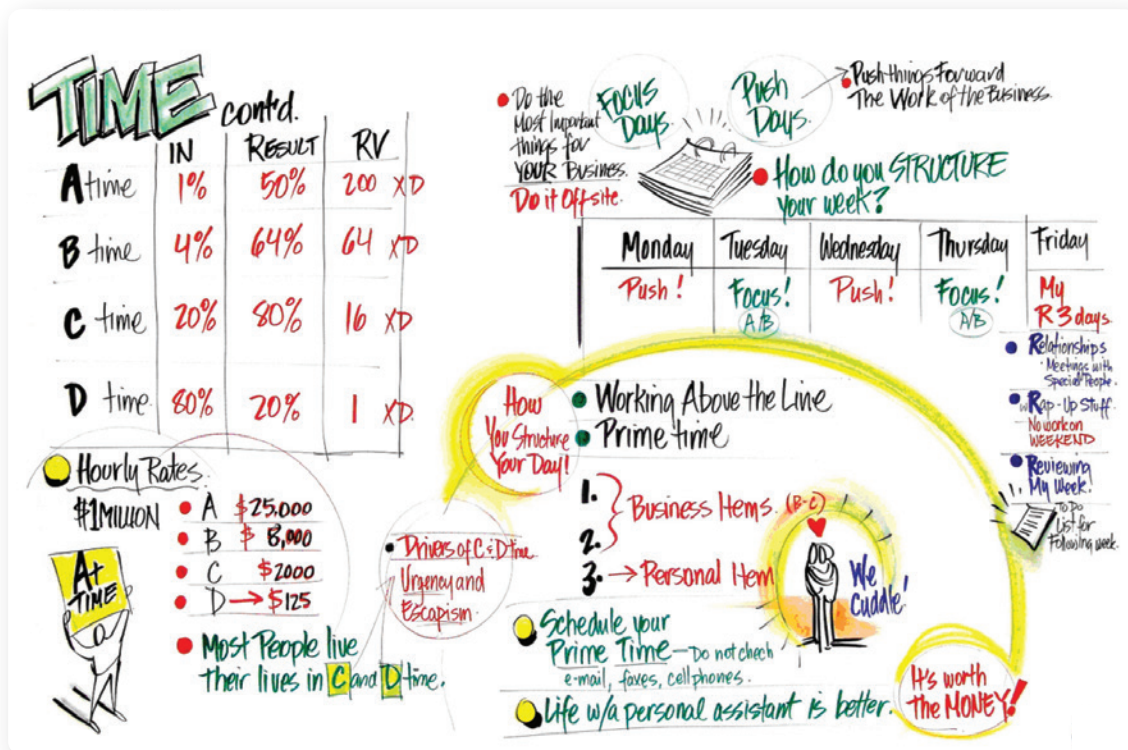 TIME cont'd.
IN RESULT RV
A time 1% 50% 200 XD
B time 4% 64% 64 XD
C time 20% 80% 16 XD
D time 80% 20% 1 XD
Hourly Rates.
$1MILLION
A $25.000
B $ 8,000
C $2000
D → $125
A+
TIME
Most People live
their lives in C and D time.
Drivers of C & D time
Urgency and
Escapism.
Do the
Most Important
things for
YOUR Business.
Do it Offsite.
FOCUS
Days.
Push
Days.
Push things Forward
The Work of the Business.
How do you STRUCTURE
your week?
Monday Tuesday Wednesday Thursday Friday
Push! Focus! Push! Focus! My
A/B A/B R3 days.
Relationships
Meetings with
Special People.
wRap-Up Stuff.
No work on
WEEKEND
Reviewing
My Week!
To Do
List for
Following week.
How
You Structure
Your Day!
Working Above the Line
Prime time
1.
2.
Business Items. (B-C)
3. → Personal Item
We
Cuddle!
Schedule your
Prime Time — Do not chech
e-mail, faxes, cellphones.
Life w/a personal assistant is better.
It's worth
the MONEY!